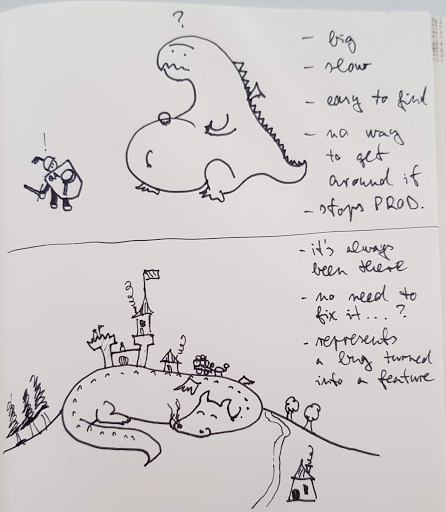 ?
- big
- slow
- easy to find
- no way
to get
around it
- stops PROD.
!
- it's always
been there
- no need to
fix it...?
- represents
a bug turned
into a feature